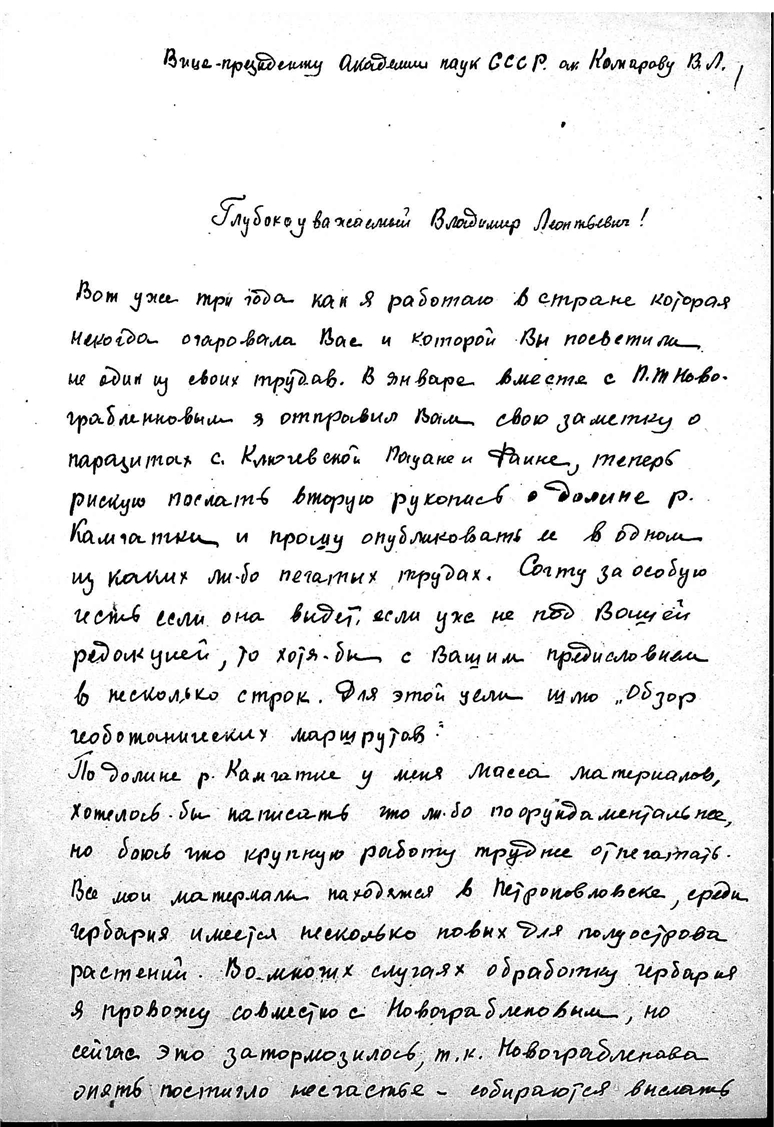 Вице-президенту Академии наук СССР. ак Комарову В.Л.
Глубокоуважаемый Владимир Леонтьевич!
Вот уже три года как я работаю в стране которая
некогда очаровала Вас и которой Вы посветили
не один из своих трудав. В январе вместе с П.Т Ново-
грабленновым я отправил Вам свою заметку о
паразитах с. Ключевской Пауане и Фаине, теперь
рискую послать вторую рукопись о долине р.
Камчатки и прошу опубликовать ее в одном
из каких ли-бо печатых трудах. Сочту за особую
честь если она видет, если уже не под Вашей
редакцией, то хотя-бы с Вашим предисловием
в несколько строк. Для этой цели шлю „Обзор
геоботанических маршрутав"
По долине р. Камчатке у меня масса материалов,
хотелось-бы написать что ли-бо пофундаментальнее,
но боюсь что крупную работу труднее отпечатать.
Все мои материалы находятся в Петроповловске, среди
гербария имеется несколько новых для полуострова
растений. Во многих случаях обработку гербария
я провожу совместно с Новограбленовым, но
сейчас это затормозилось, т.к. Новограбленова
опять постигло несчастье - собираются выслать